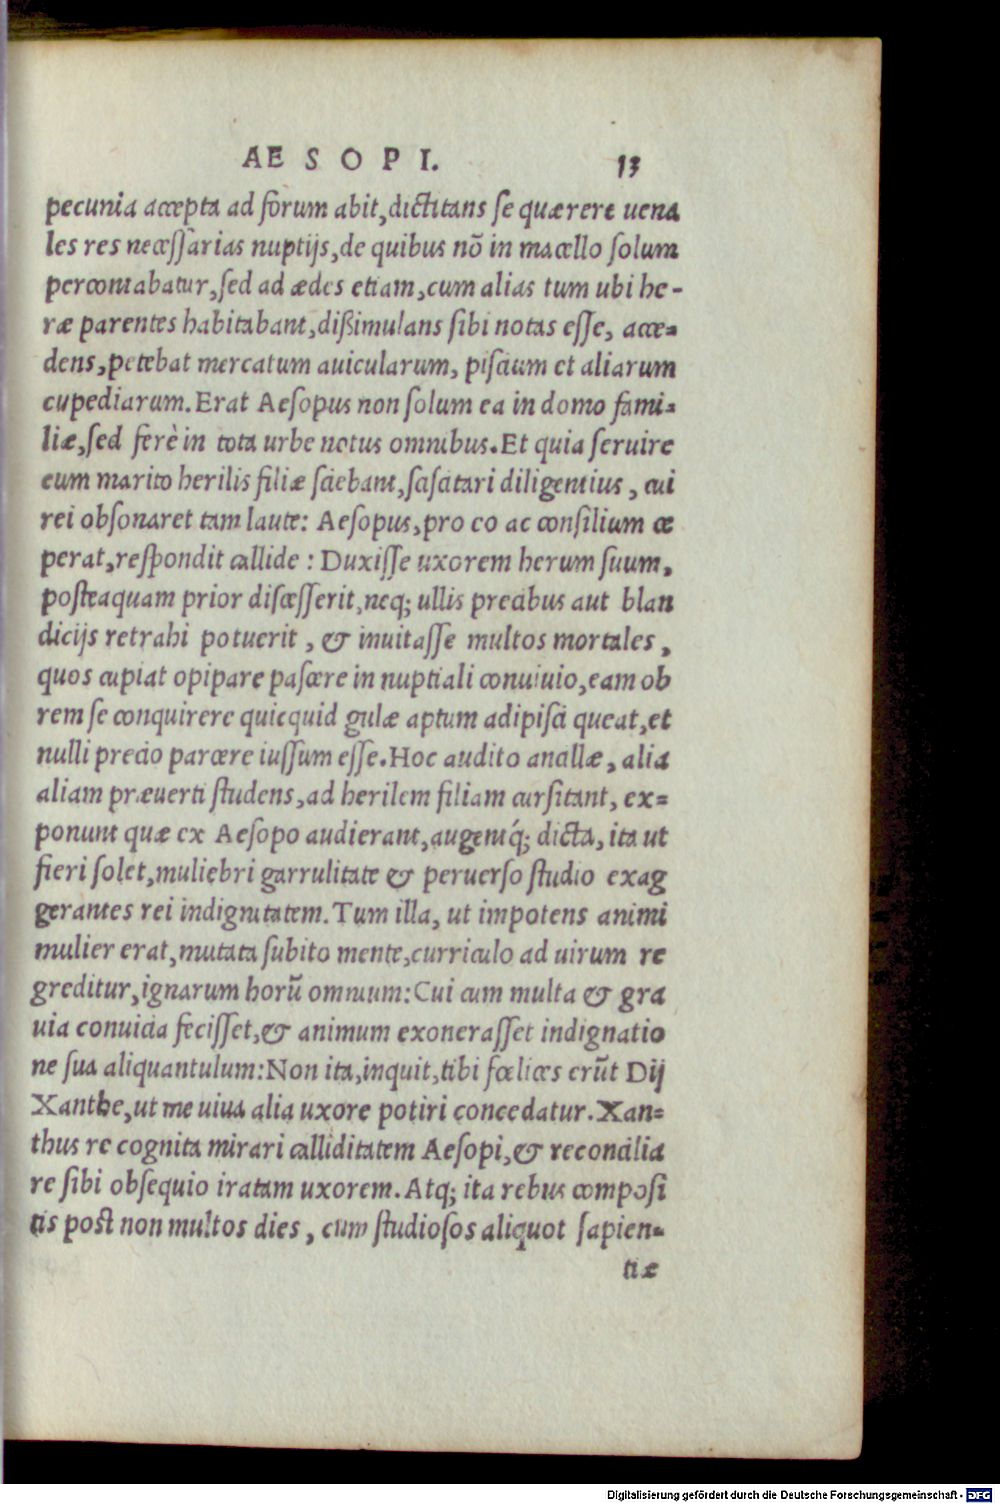 AESOPI. 13
pecunia accepta ad forum abit, dictitans se quærere uena
les res necessarias nuptijs, de quibus nõ in macello solum
percontabatur, sed ad ædes etiam, cum alias tum ubi he-
ræ parentes habitabant, dißimulans sibi notas esse, acce-
dens, petebat mercatum auicularum, piscium et aliarum
cupediarum. Erat Aesopus non solum ea in domo fami-
liæ, sed ferè in tota urbe notus omnibus. Et quia seruire
eum marito herilis filiæ sciebant, sciscitari diligentius, cui
rei obsonaret tam laute: Aesopus, pro eo ac consilium ce
perat, respondit callide: Duxisse uxorem herum suum,
posteaquam prior discesserit, neq; ullis precibus aut blan
dicijs retrahi potuerit, & inuitasse multos mortales,
quos cupiat opipare pascere in nuptiali conuiuio, eam ob
rem se conquirere quicquid gulæ aptum adipisci queat, et
nulli precio parcere iussum esse. Hoc audito ancillæ, alia
aliam præuerti studens, ad herilem filiam cursitant, ex-
ponunt quæ ex Aesopo audierant, augentq́; dicta, ita ut
fieri solet, muliebri garrulitate & peruerso studio exag
gerantes rei indignitatem. Tum illa, ut impotens animi
mulier erat, mutata subito mente, curriculo ad uirum re
greditur, ignarum horũ omnium: Cui cum multa & gra
uia conuicia fecisset, & animum exonerasset indignatio
ne sua aliquantulum: Non ita, inquit, tibi fœlices erũt Dij
Xanthe, ut me uiua alia uxore potiri concedatur. Xan-
thus re cognita mirari calliditatem Aesopi, & reconcilia
re sibi obsequio iratam uxorem. Atq; ita rebus composi
tis post non multos dies, cum studiosos aliquot sapien-
tiæ
Digitalisierung gefördert durch die Deutsche Forschungsgemeinschaft - DFG